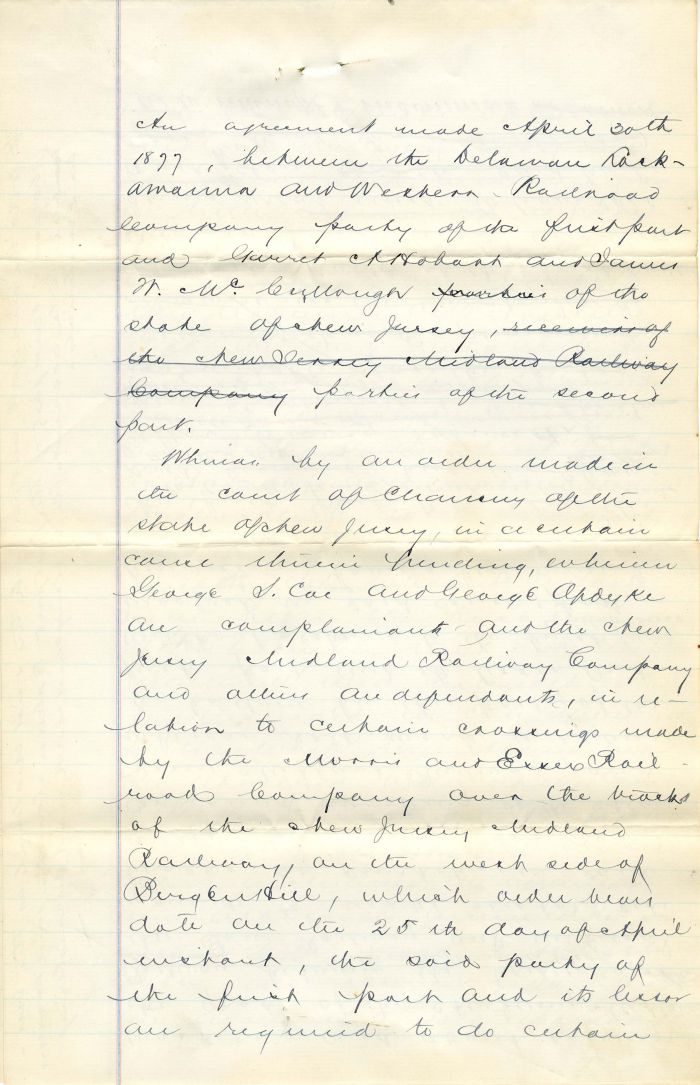 An agreement made April 30th
1877, between the Delaware Lack-
awanna and Western Railroad
Company party of the first part
and Garret A Hobart and James
W. Mc Cullough parties of the
state of New Jersey, receivers of
the New Jersey Midland Railway
Company parties of the second
part.
Whereas by an order made in
the court of Chancery of the
state of New Jersey, in a certain
cause therein pending, wherein
George S. Coe and George Opdyke
are complainants and the New
Jersey Midland Railway Company
and others are defendants, in re-
lation to certain crossings made
by the Morris and Essex Rail-
road Company over the tracks
of the New Jersey Midland
Railway, on the west side of
Bergen Hill, which order bears
date on the 25th day of April
instant, the said party of
the first part and its lessor
are required to do certain